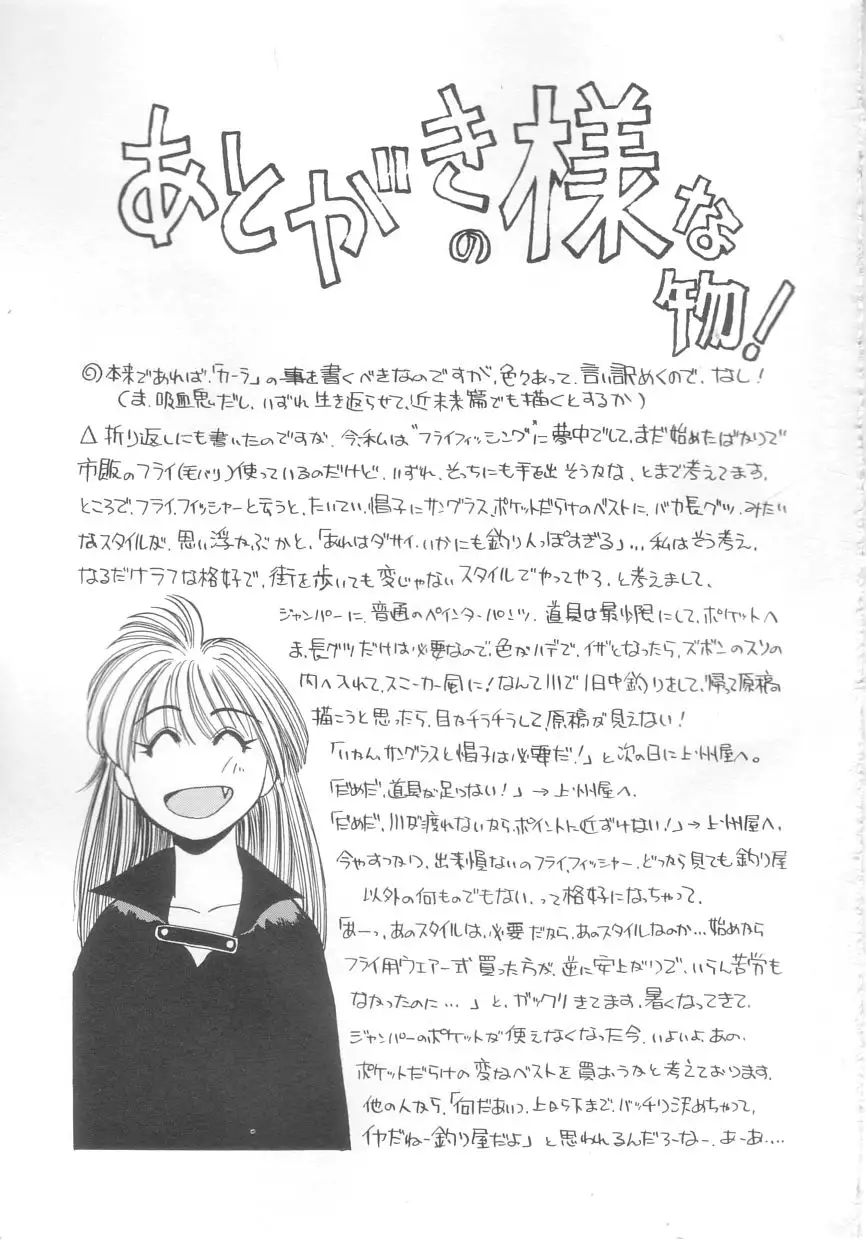 あとがきの様な物!
◎本来であれば、「カーラ」の事を書くべきなのですが、色々あって、言い訳めくので、なし!
(ま、吸血鬼だし、いずれ生き返らせて、近未来篇でも描くとするか)
△折り返しにも書いたのですが、今、私は“フライフィッシング”に夢中でして、まだ始めたばかりで
市販のフライ(毛バリ)使っているのだけど、いずれ、そっちにも手を出そうかな、とまで考えてます。
ところで、フライ、フィッシャーと云うと、たいてい、帽子にサングラス、ポケットだらけのベストに、バカ長グツ、みたい
なスタイルが、思い浮かぶかと、「あれはダサイ、いかにも釣り人っぽすぎる」…私はそう考え、
なるだけラフな格好で、街を歩いても変じゃないスタイルでやってやろ、と考えまして、
ジャンパーに、普通のペインターパンツ、道具は最少限にして、ポケットへ
ま、長グツだけは必要なので、色がハデで、イザとなったら、ズボンのスソの
内へ入れて、スニーカー風に!なんて川で1日中釣りまして、帰って原稿
描こうと思ったら、目がチラチラして!原稿が見えない!
「いかん、サングラスと帽子は必要だ!」と次の日に上州屋へ。
「だめだ、道具が足らない!」→上州屋へ、
「だめだ、川が渡れないから、ポイントに近ずけない!」→上州屋へ、
今やすっかり、出来損ないのフライ、フィッシャー、どっから見ても釣り屋
以外の何ものでもない、って格好になっちゃって、
「あーっ、あのスタイルは、必要だから、あのスタイルなのか…始めから
フライ用ウェア一式買った方が、逆に安上がりで、いらん苦労も
なかったのに…」と、ガックリきてます、暑くなってきて、
ジャンパーのポケットが使えなくなった今、いよいよ、あの、
ポケットだらけの変なベストを買おうかと考えております、
他の人なら、「何だあいつ、上から下まで、バッチリ決めちゃって、
イヤだねー釣り屋だよ」と思われるんだろーなー、あーあ…